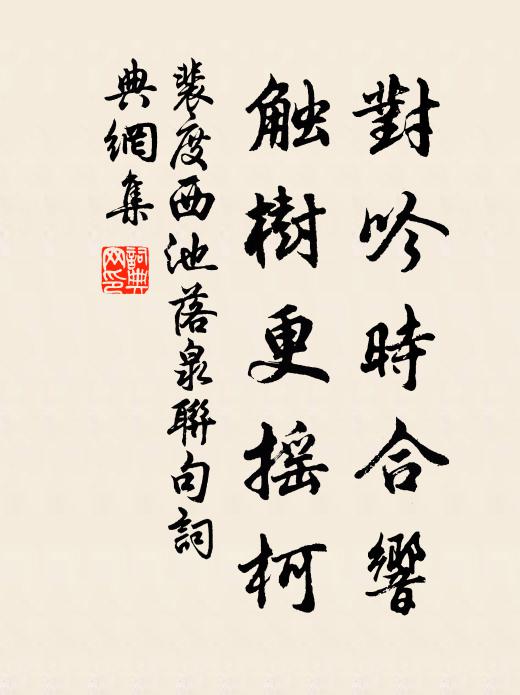 對吟時合響
触樹更摇柯
裴度西池落泉聯句詞
典網集
詞典
网印